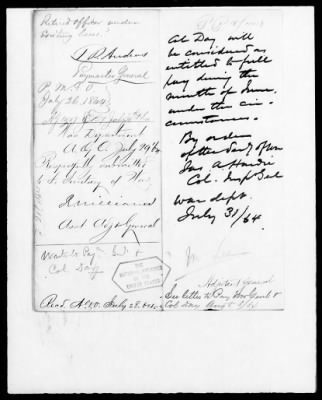 Retired officer under
existing laws?
T. P. Andrews
Paymaster General
P. M. G. O.
July 26. 1864
War Department
A. G. O. July 29/64
Respectfully submitted
to Secretary of War
Asst Adjt General
Col Day
THE
NATIONAL ARCHIVES
OF THE
UNITED STATES
Recd. A.G.O. July 28. 1864
Col Day will
be considered as
entitled to full
pay during the
month of June,
under the cir-
cumstances.
By order
of the Secy of War
Jas. A. Hardie
Col. Insp Gel
War dept.
July 30/64
Adjutant General
See letter to Pay
Col Day Augt